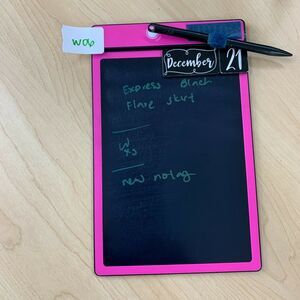 December 21
Express Black
Flare skirt
W
XS
new no tag